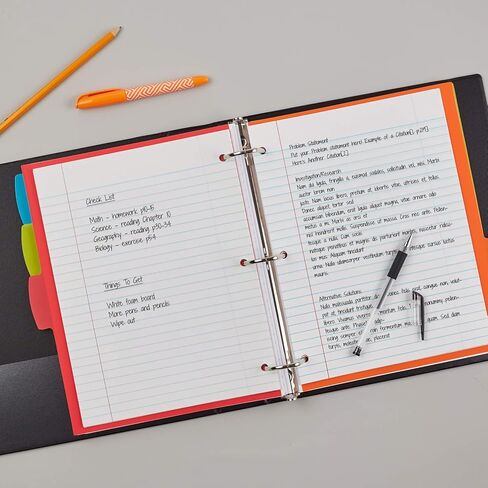 Check List
Math - homework p10-15
Science - reading Chapter 10
Geography - reading p30-34
Biology - exercise p54
Things To Get!
White foam board
More pens and pencils
Wipe out
Problem Statement
Put your Problem statement here! Example of a Citation[1, p.215]
Here's Another Citation[2]
Investigation/Research
Nam dui ligula, fringilla a, euismod sodales, sollicitudin vel, nisi. Morbi
auctor lorem non
justo. Nam lacus libero, pretium at, lobortis vitae, ultricies et tellus.
Donec aliquet tortor sed
accumsan bibendum, erat ligula aliquet magna, vitae ornare odio
metus a mi. Morbi ac orci et
nisl hendrerit mollis. Suspendisse ut massa. Cras nec ante. Pellen-
tesque a nulla. Cum sociis
natoque penatibus et magnis dis parturient montes, nascetur ridicu-
lus mus. Aliquam tincidunt
tellus cursus luctus
mauris.
Alternative Solutions
Nulla malesuada porttitor felis erat, congue non, volut-
pat at, tincidunt tristique, libero. Vivamus viverra